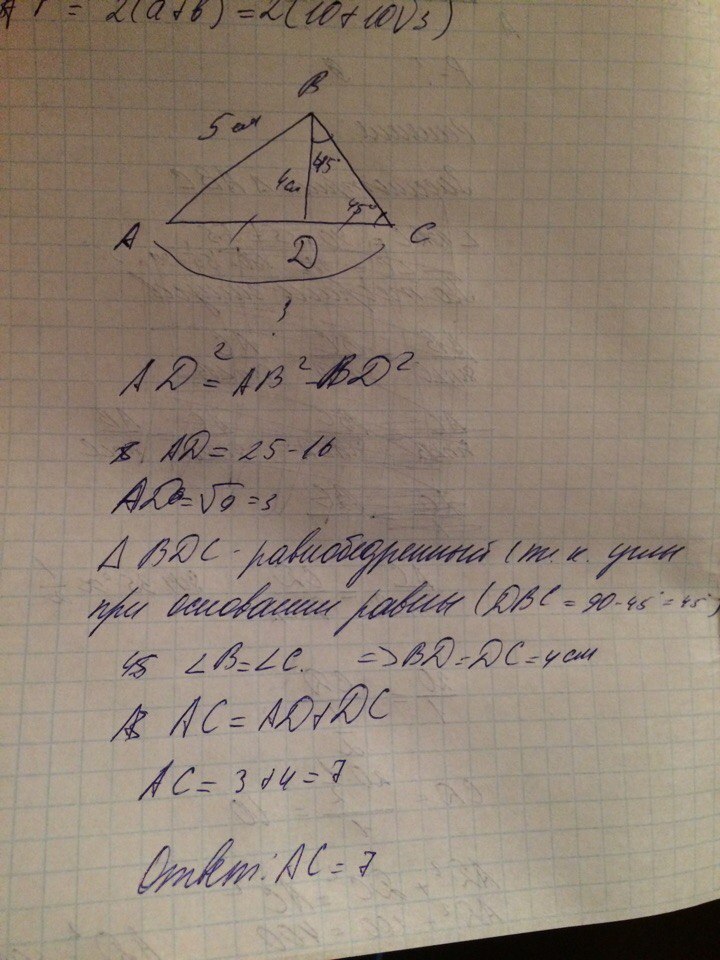 P = 2(a+b) = 2(10+10√3)
B
5 см
45°
4см
45°
A
D
C
?
AD² = AB² - BD²
AD = 25 - 16
AD = √9 = 3
Δ BDC - равнобедренный (т. к. углы
при основании равны (DBC = 90 - 45 = 45°)
∠B = ∠C. => BD = DC = 4 см
AC = AD + DC
AC = 3 + 4 = 7
Ответ: AC = 7